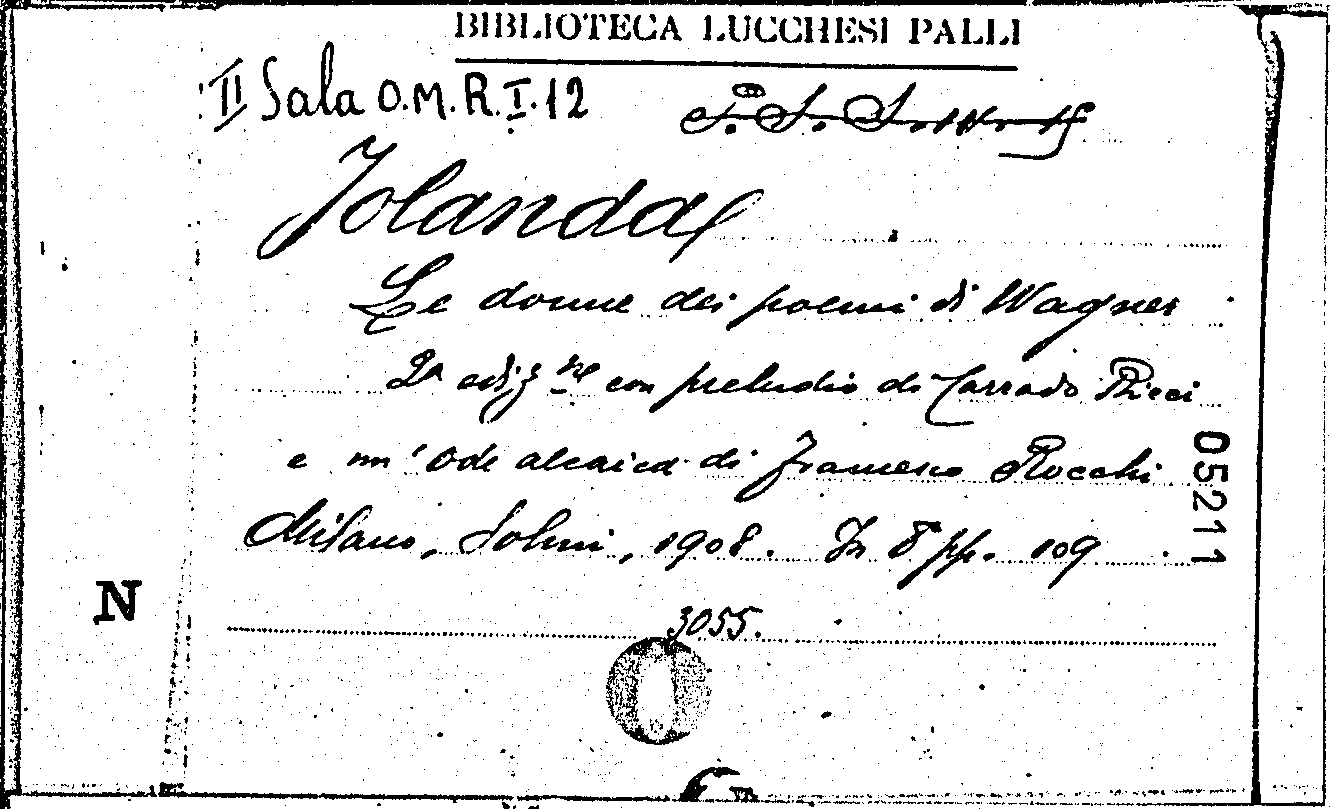 BIBLIOTECA LUCCHESI PALLI
II Sala O.M.R.I.12
Jolanda
Le donne dei poemi di Wagner
2ª ediz.ne con preludio di Corrado Ricci
e un'Ode alcaica di Francesco Rocchi
Milano, Solmi, 1908. In 8° pp. 109
3055.
05211
N